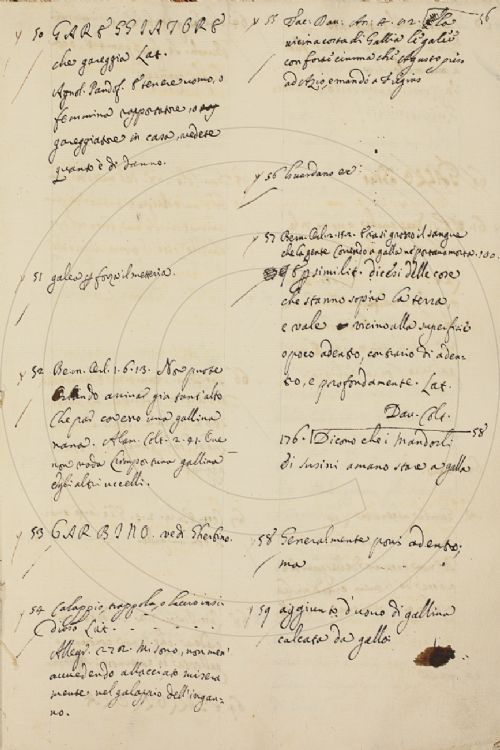 50 GAREGGIATORE
che gareggia Lat.
Agnol. Pandol. tenere uomo, o
femmina rapportatore, o
gareggiatore in casa, vedete
quanto è di danno.
51 galea forza il meteria.
52 Benv. Cel. 1. 6. 13. Non puote
arrivar già tant'alto
Che par covero una gallina
nana. Alam. Colt. 2. 41. Che
non roda importuna gallina
e gli altri uccelli.
53 GARBINO. vedi Gherbino.
54 Calappio, trappola, o laccio insi
dioso Lat.
Allegr. 272. Mi sono, non men'
accedendo allacciato misera
mente nel galappio dell'ingan-
no.
55 Tac. Dav. An. 4. 82. alla 56
vicina costa di Gallia le galee
con forte ciurma che Agusto prese
ad Azio, e mandò a Fregius
56 Guardano ec.
57 Bern.
che la gente Correndo a galla ne portava morta. 100.
98 similit. dicesi delle cose
che stanno sopra la terra
e vale vicino alla superficie
o poco adentro, contrario di aden-
tro, e profondamente. Lat.
Dav. Colt.
176. Dicono che i mandorli 58
Di susini amano stare a galla
58 Generalmente ponsi adentro;
ma
59 aggiunto d'uovo di gallina
calcata da gallo